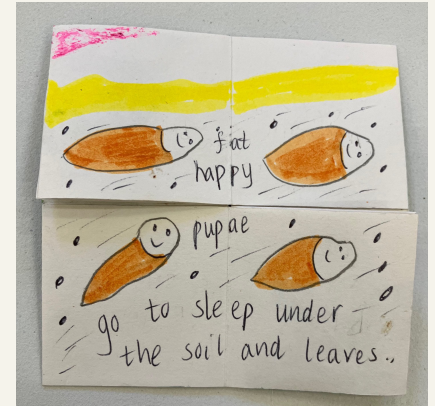 fat
happy
pupae
go to sleep under
the soil and leaves..